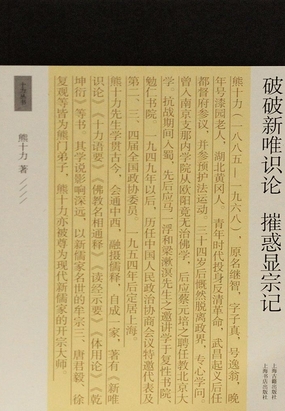 破破新唯识论　摧惑显宗记
上海古籍出版社
上海书店出版社
熊十力（一八八五—一九六八），原名继智，字子真，号逸翁，晚
年号漆园老人，湖北黄冈人。青年时代投身反清革命，武昌起义后任
都督府参议，并参预护法运动。三十四岁后慨然脱离政界，专心学问，
曾入南京支那内学院从欧阳竟无治佛学，后应蔡元培之聘任教北京大
学。抗战期间入蜀，先后应马一浮和梁漱溟先生之邀讲学于复性书院、
勉仁书院。一九四九年以后，历任中国人民政治协商会议特邀代表及
第二、三、四届全国政协委员。一九五四年后定居上海。
熊十力先生学贯古今，会通中西，融摄儒释，自成一家，著有《新唯
识论》《十力语要》《佛教名相通释》《读经示要》《体用论》《乾
坤衍》等书，其学说影响深远，以新儒家名世的牟宗三、唐君毅、徐
复观等皆为熊门弟子，熊十力亦被尊为现代新儒家的开宗大师。
熊十力 著
十力丛书